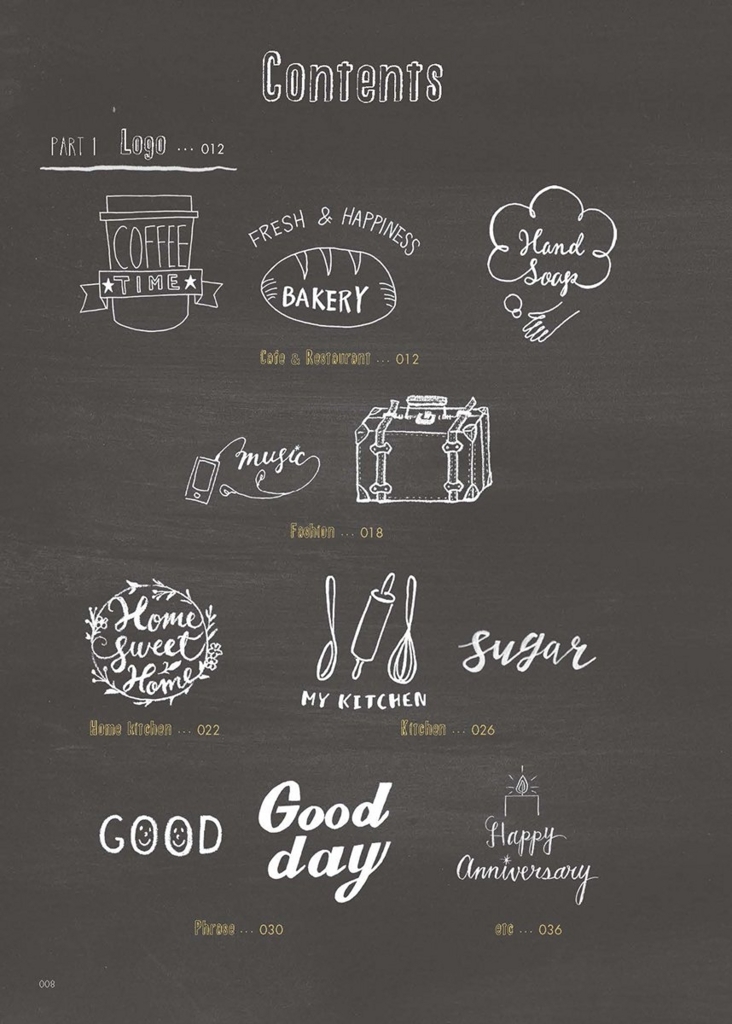 Contents
PART 1 Logo ... 012
COFFEE
TIME
FRESH & HAPPINESS
BAKERY
Hand
Soap
Cafe & Restaurant ... 012
music
Fashion ... 018
Home
sweet
Home
MY KITCHEN
sugar
Home kitchen ... 022
Kitchen ... 026
GOOD
Good
day
Happy
Anniversary
Phrase ... 030
etc ... 036
008